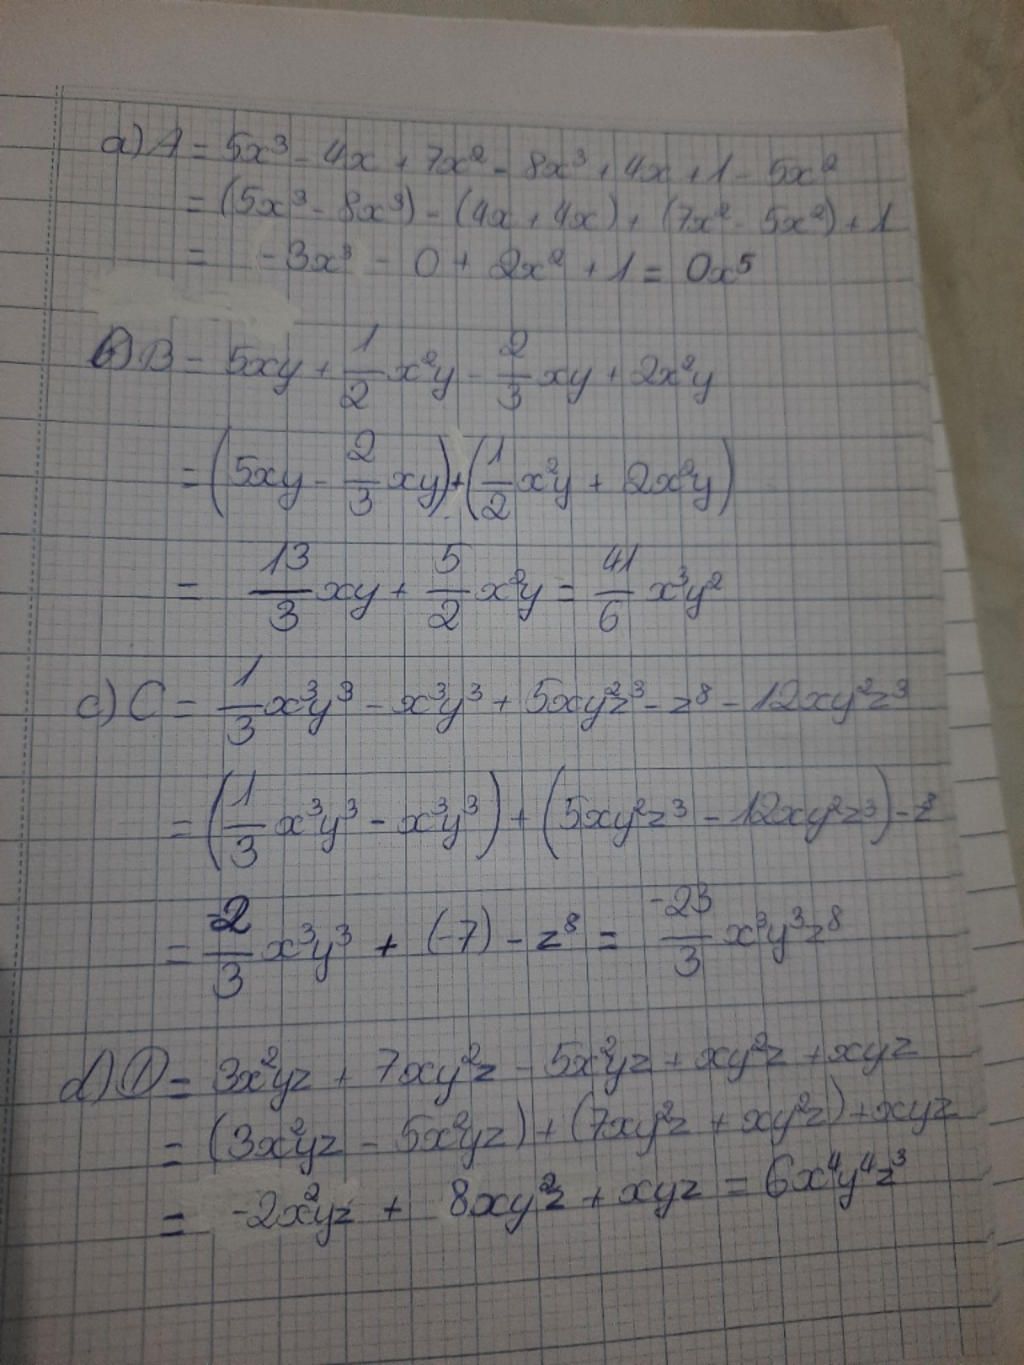 a) A = 5x³ - 4x + 7x² - 8x³ + 4x + 1 - 5x²
= (5x³ - 8x³) - (4x + 4x) + (7x² - 5x²) + 1
= -3x³ - 0 + 2x² + 1 = 0x⁵
b) B = 5xy + 1/2 x²y - 2/3 xy + 2x²y
= (5xy - 2/3 xy) + (1/2 x²y + 2x²y)
= 13/3 xy + 5/2 x²y = 41/6 x³y²
c) C = 1/3 x³y³ - x³y³ + 5xy²z³ - z⁸ - 12xy²z³
= (1/3 x³y³ - x³y³) + (5xy²z³ - 12xy²z³) - z⁸
= -2/3 x³y³ + (-7) - z⁸ = -23/3 x³y³z⁸
d) D = 3x²yz + 7xy²z - 5x²yz + xy²z + xyz
= (3x²yz - 5x²yz) + (7xy²z + xy²z) + xyz
= -2x²yz + 8xy²z + xyz = 6x⁴y⁴z³